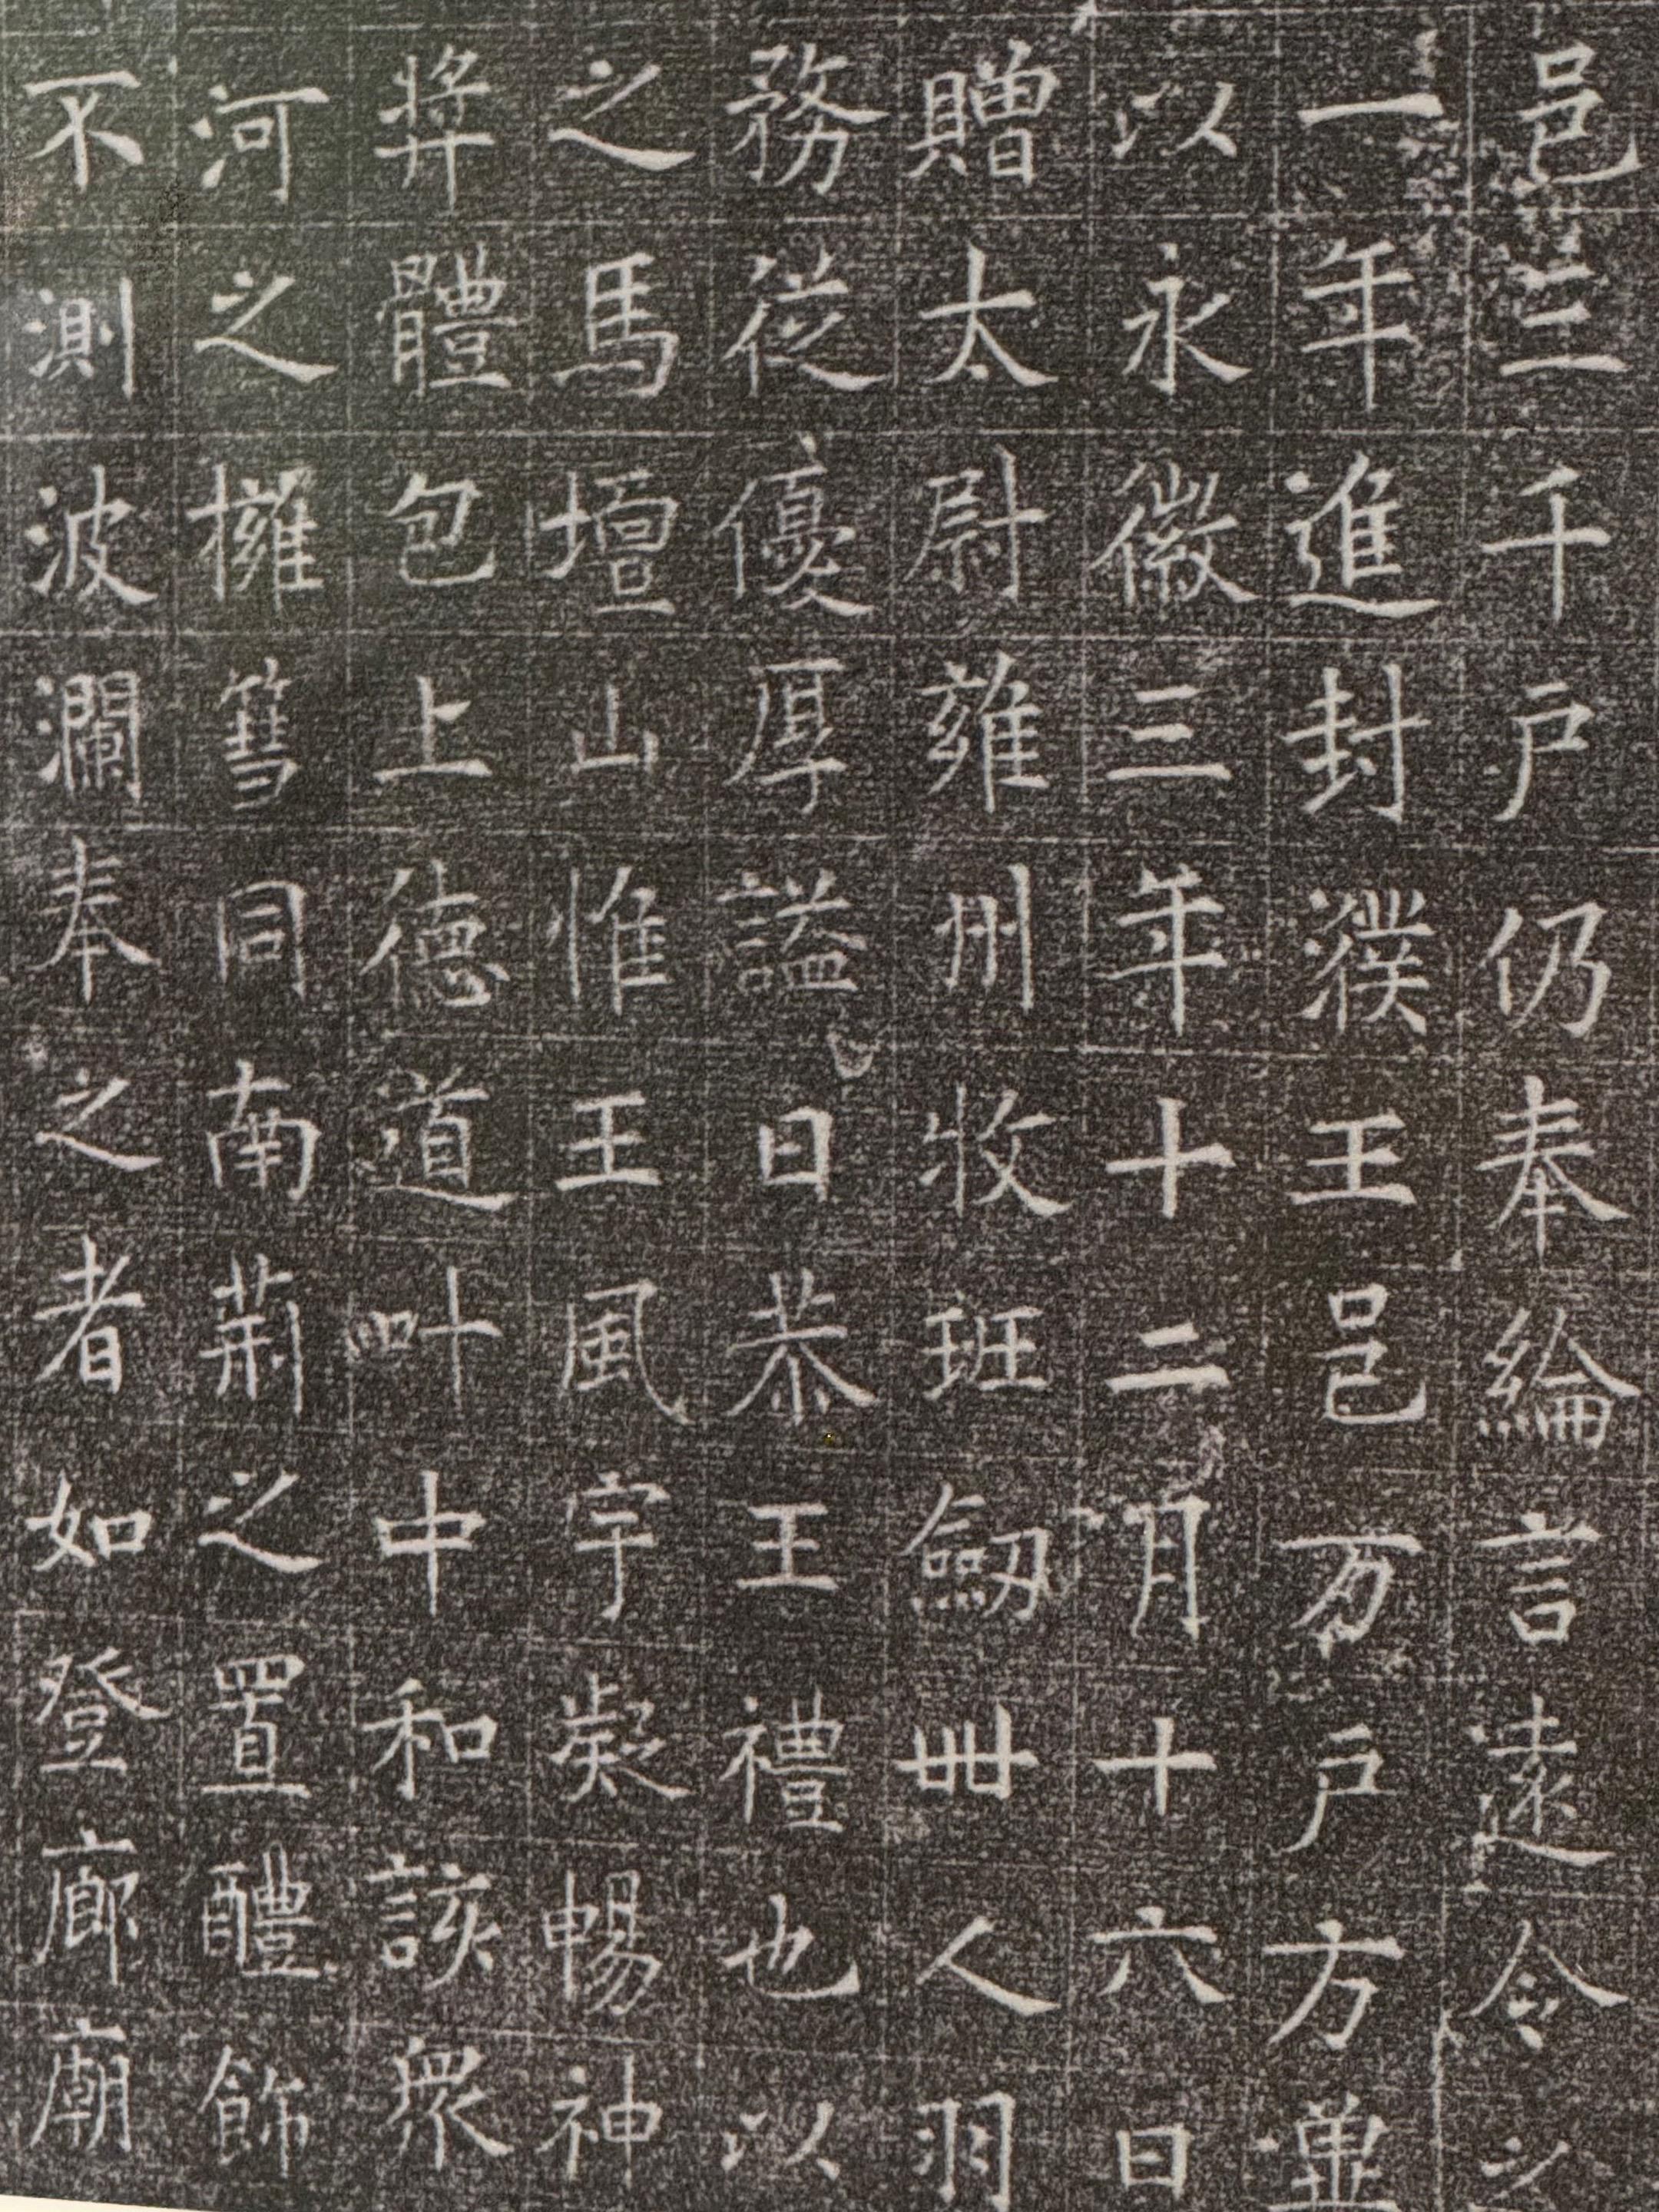 邑三千户仍奉綸言遠令
一年進封濮王邑万户方並
以永徽三年十二月十六日
贈太尉雍州牧班劒卌人羽
務從優厚謚曰恭王禮也以
之馬壇山惟王風宇凝暢神
弉體包上德道叶中和該衆
河之擁篲同南荊之置醴飾
不測波瀾奉之者如登廊廟